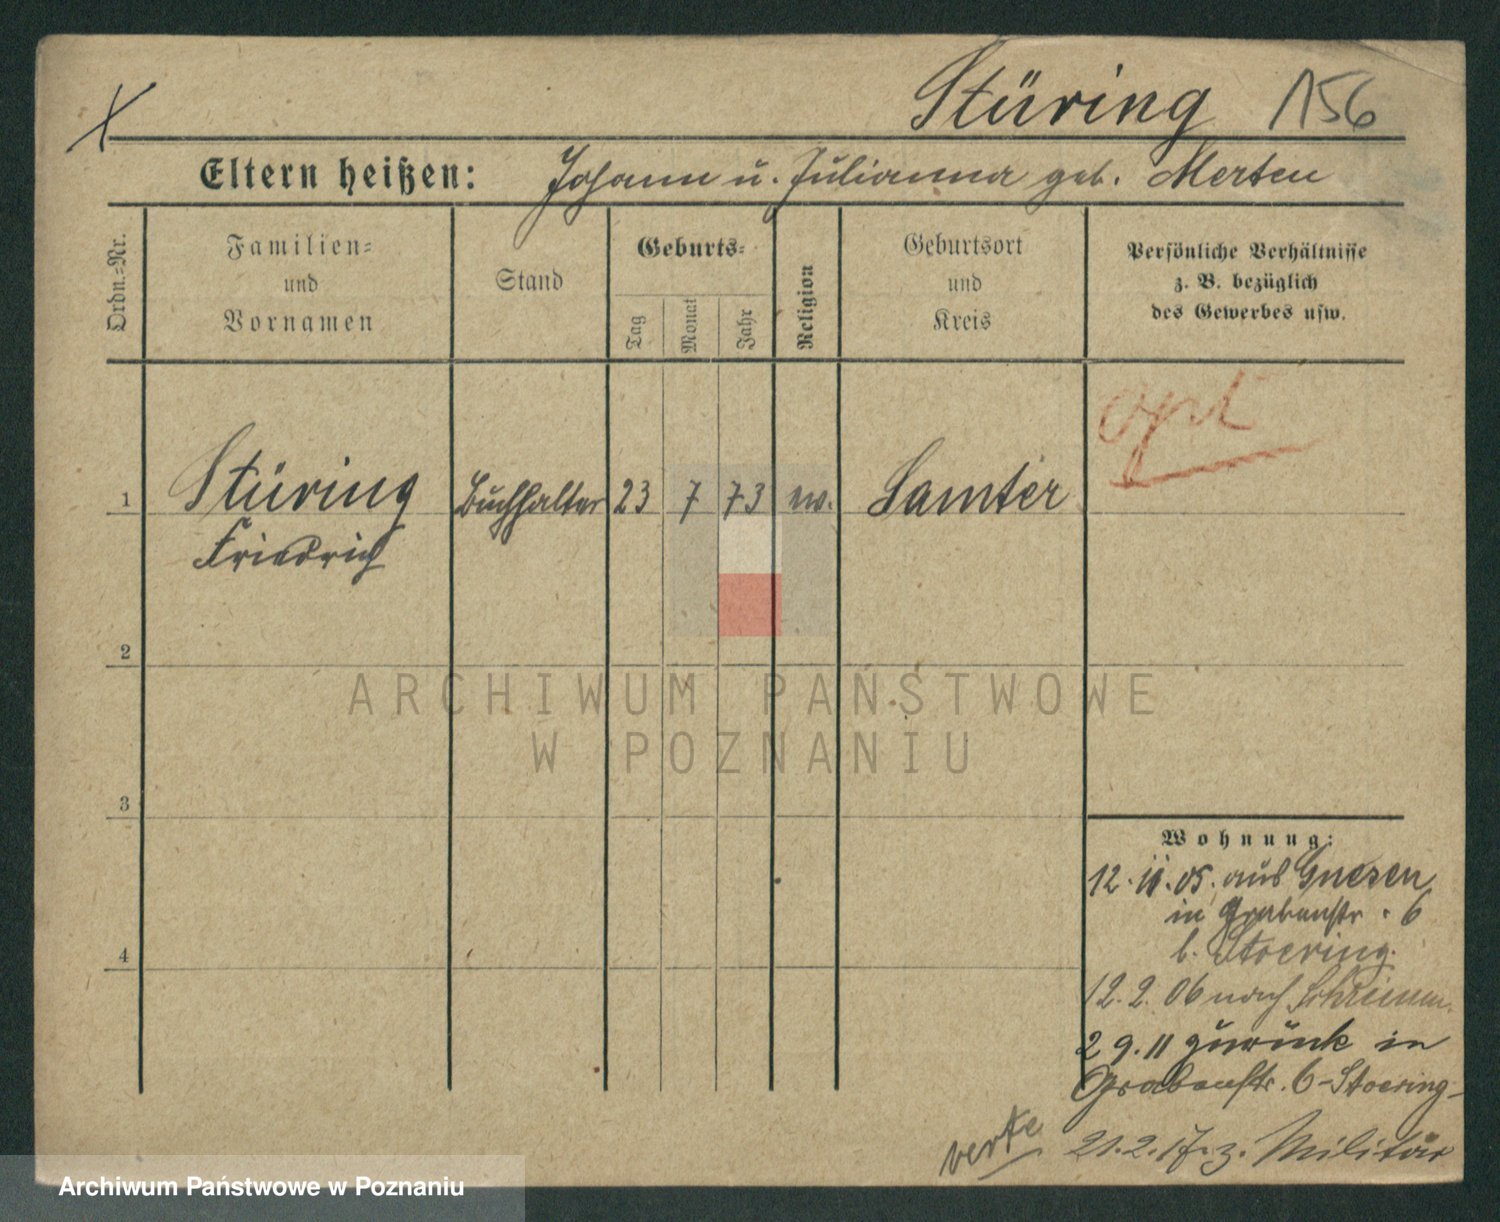 Stüring 156
Eltern heißen: Johann u. Julianna geb. Merten
Ordn.-Nr.
Familien-
und
Vornamen
Stand
Geburts-
Tag
Monat
Jahr
Religion
Geburtsort
und
Kreis
Persönliche Verhältnisse
z. B. bezüglich
des Gewerbes usw.
opt
1 Stüring Buchhalter 23 7 73 ev. Samter
Friedrich
2
ARCHIWUM PAŃSTWOWE
W POZNANIU
3
Wohnung:
12. 11. 05. aus Gnesen
in Grabenstr. 6
b. Stoering.
4
12. 2. 06 nach Schrimm.
2 9. 11 zurück in
Grabenstr. 6 - Stoering -
21. 2. 17. z. Militär
Archiwum Państwowe w Poznaniu